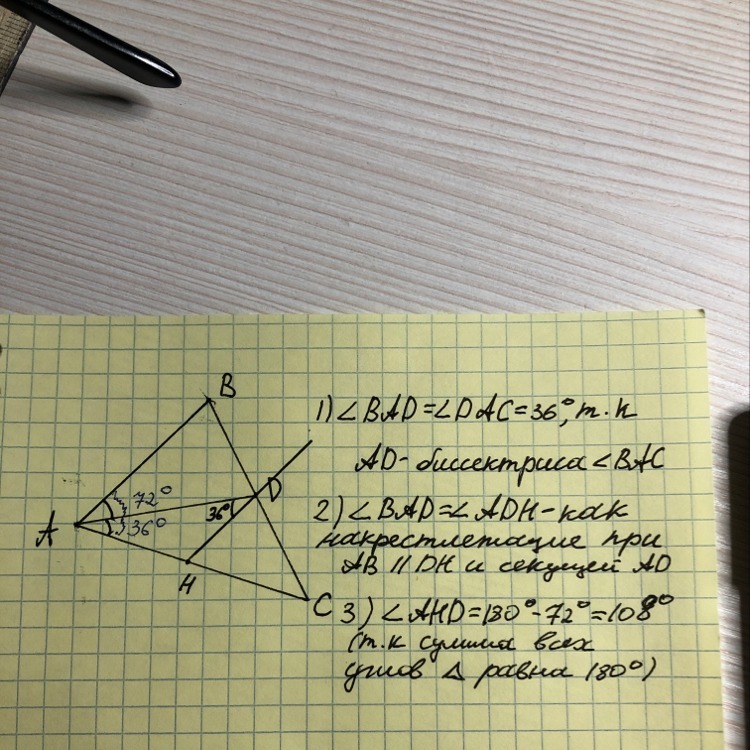 B
1) ∠BAD=∠DAC=36°, т.к
AD-биссектриса ∠BAC
72°
D
36°
36°
A
H
C
2) ∠BAD=∠ADH-как
накрестлетащие при
AB || DH и секущей AD
3) ∠AHD=180°-72°=108°
(т.к сумма всех
углов Δ равна 180°)